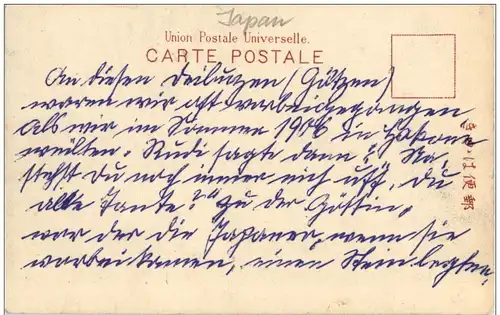 Japan
Union Postale Universelle.
CARTE POSTALE
An diesen Deibutzen (Götzen)
waren wir oft vorbeigegangen
Als wir im Sommer 1906 in Hakone
weilten. Rudi sagte dann: "Na
stehst Du noch immer nich uff, Du
alte Tante?" zu der Göttin,
vor der die Japaner, wenn sie
vorbeikamen, einen Stein legten.
きがは便郵